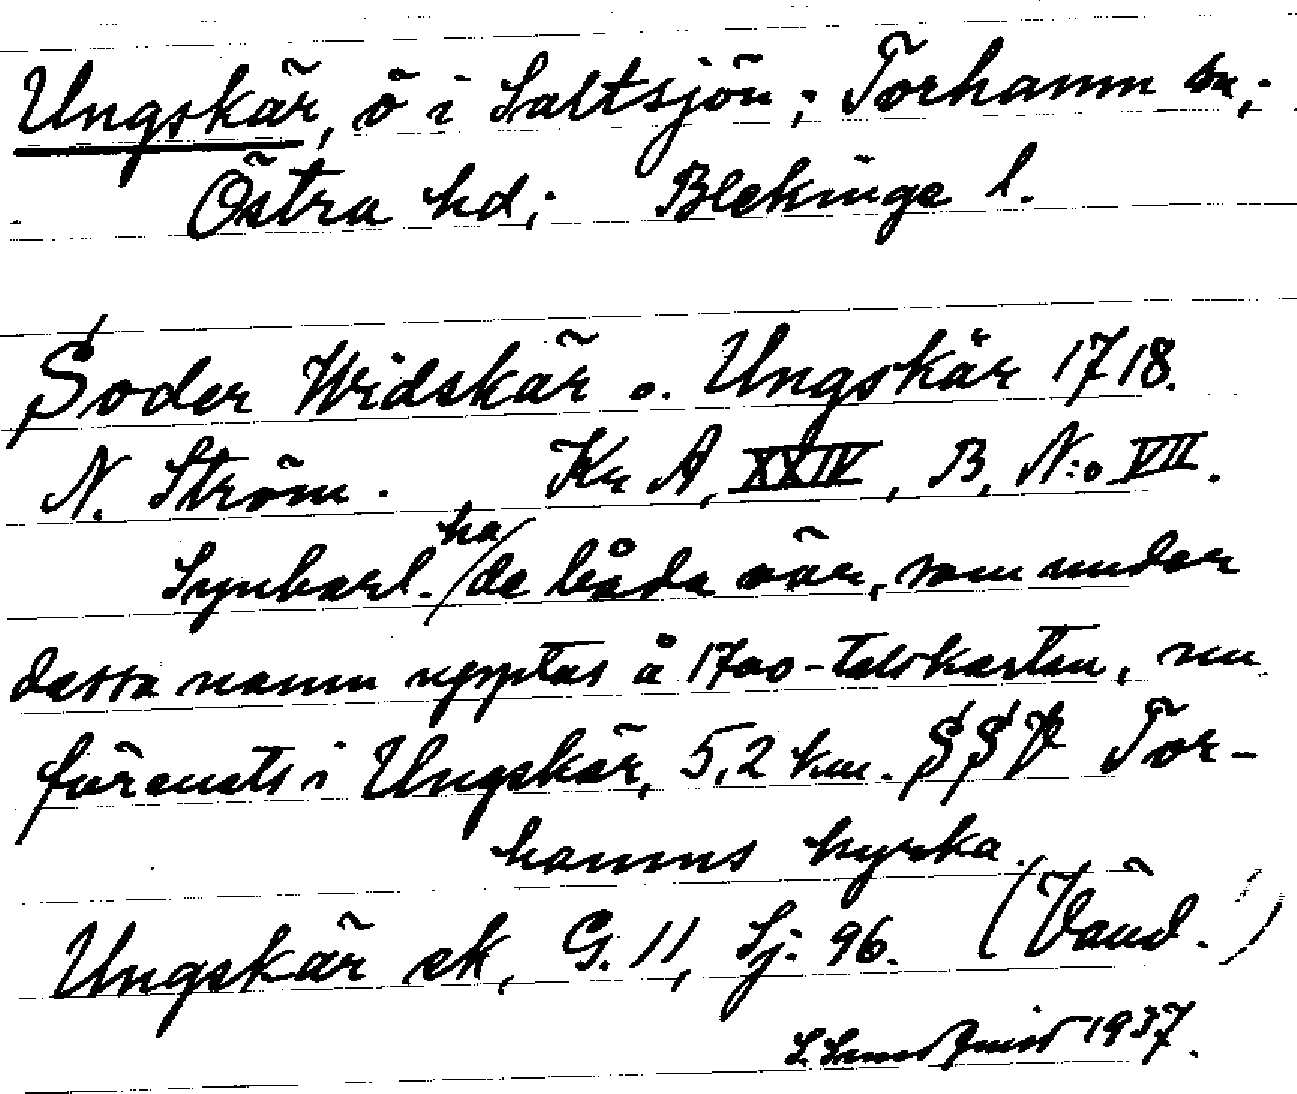 Ungskär, ö i Saltsjön; Torhamn sn;
Östra hd; Blekinge l.
Söder Wridskär o. Ungskär 1718.
N. Ström. Kr A, XXIV, B, N:o VII.
Synbarl. ha de båda öar, som under
dessa namn upptas å 1700-talskartan, nu
förenats i Ungskär, 5,2 km. SSV Tor-
hamns kyrka.
Ungskär ek, G. 11, Sj. 96. (Vänd.!)
S. Lundquist 1937.